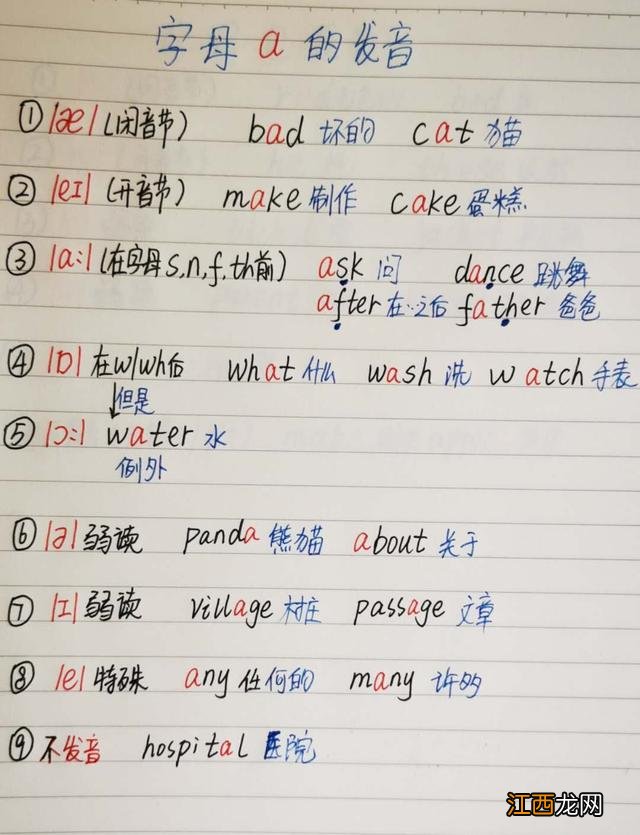 字母 a 的发音
① |æ| (闭音节) bad 坏的 cat 猫
② |eɪ| (开音节) make 制作 cake 蛋糕
③ |a:| (在字母s,n,f,th前) ask 问 dance 跳舞
after 在..之后 father 爸爸
④ |ɒ| 在w/wh后 what 什么 wash 洗 watch 手表
但是
⑤ |ɔ:| water 水
例外
⑥ |ə| 弱读 panda 熊猫 about 关于
⑦ |ɪ| 弱读 village 村庄 passage 文章
⑧ |e| 特殊 any 任何的 many 许多
⑨ 不发音 hospital 医院
江西龙网